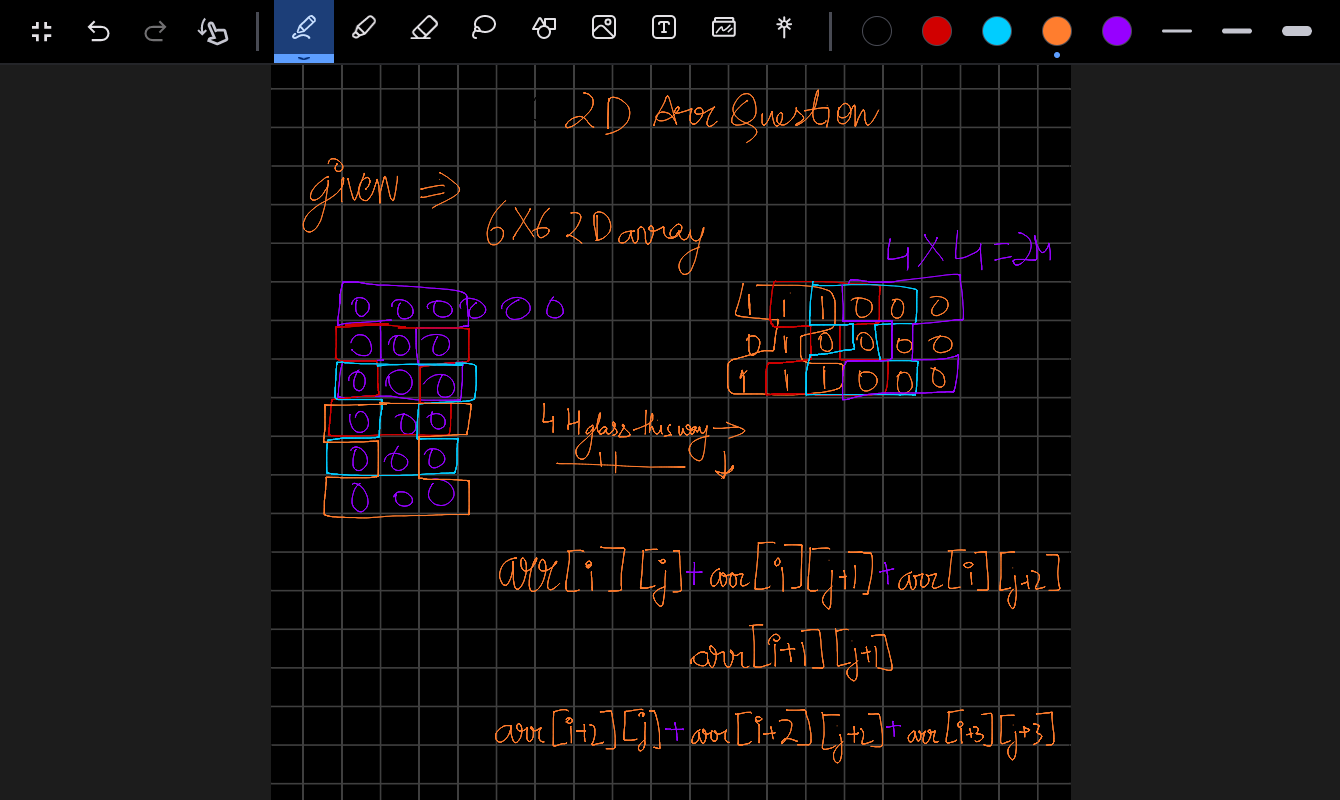 2D Arr Question
given ⇒
6X6 2D array
4X4=24
0 0 0 0 0 0
0 0 0
0 0 0
0 0 0
0 0 0
0 0 0
1 1 1 0 0 0
0 1 0 0 0 0
1 1 1 0 0 0
4 Hglass this way →
↓
arr[i][j]+arr[i][j+1]+arr[i][j+2]
arr[i+1][j+1]
arr[i+2][j]+arr[i+2][j+2]+arr[i+3][j+3]